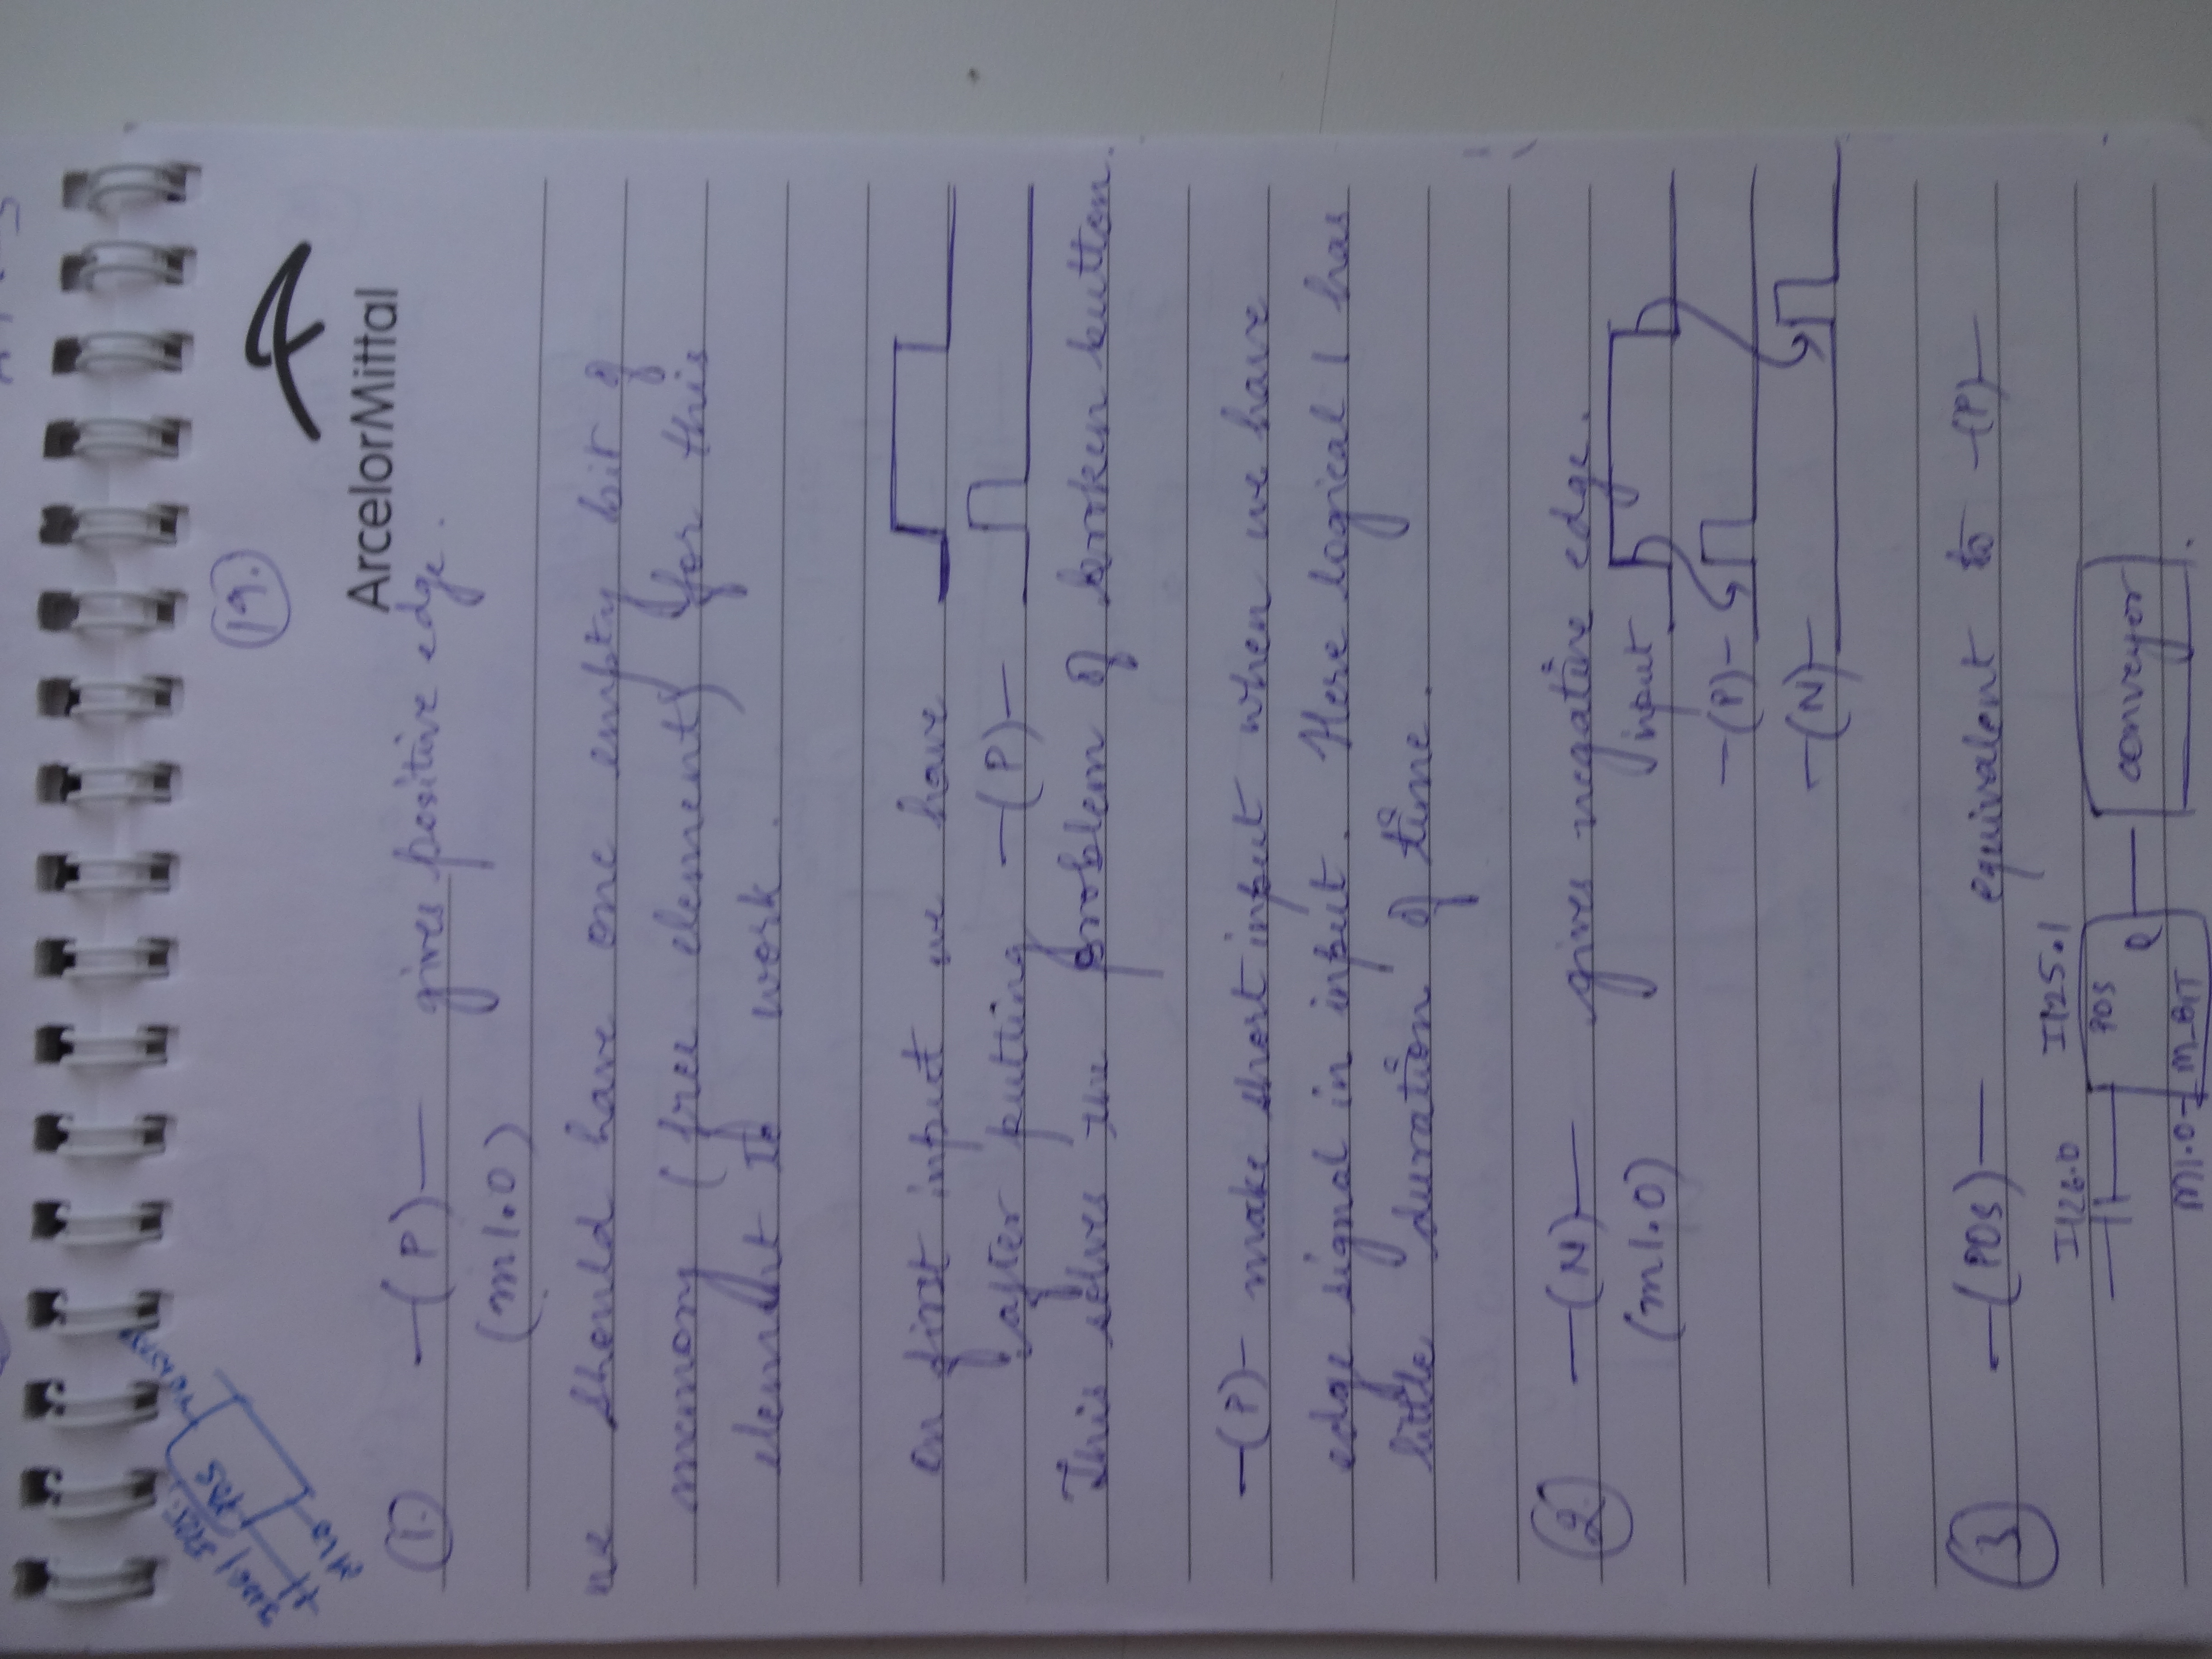 19.
ArcelorMittal
1. —(P)— gives positive edge.
(m1.0)
we should have one empty bit of
memory (free element) for this
element to work.
on first input we have
after putting —(P)—
This solves the problem of broken button.
—(P)— make short input when we have
edge signal in input. Here logical 1 has
little duration of time.
2. —(N)— gives negative edge.
(m1.0) input
—(P)—
—(N)—
3 —(POS)— equivalent to —(P)—
I126.0 I125.1
POS Q conveyor
M1.0 M_BIT